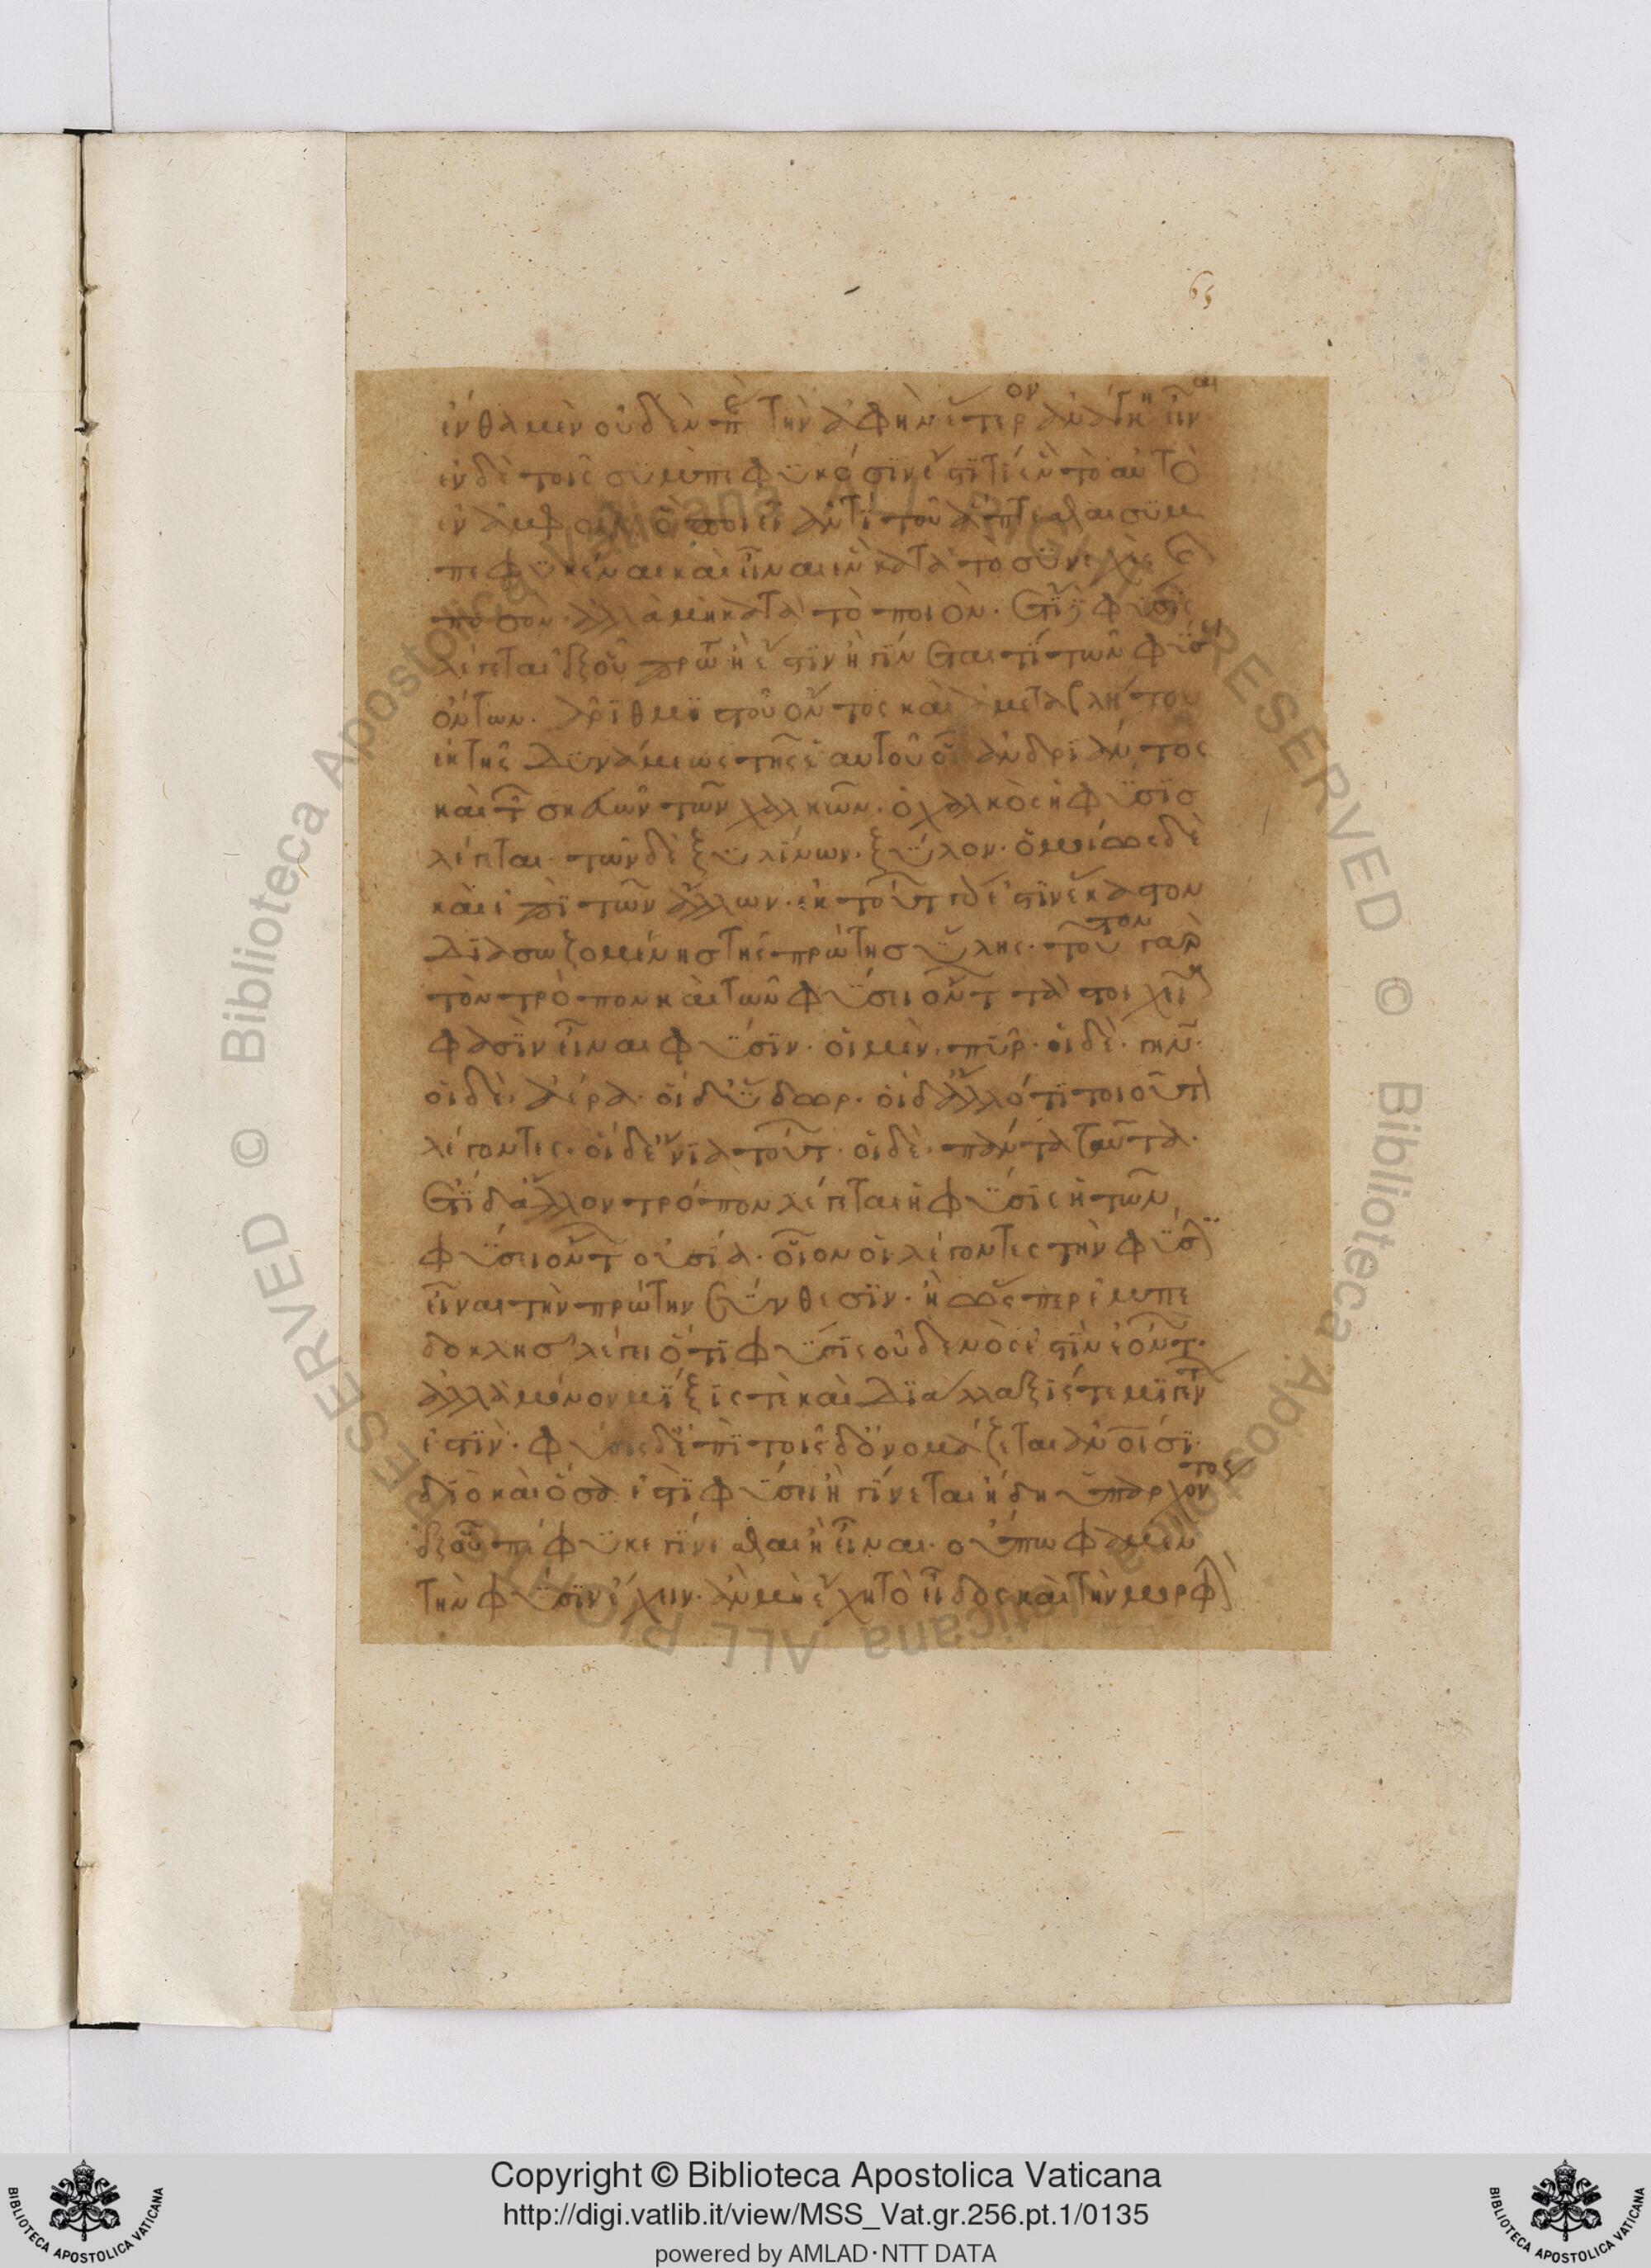 65
ἔνθα μὲν οὐδὲν π̅ τὴν ἁφὴν ἕτερον ἀνάγκη εἶναι
ἐν δὲ τοῖς συμπεφυκόσιν ἔστι τι ἓν τὸ αὐτὸ
ἐν ἀμφοῖν ὃ ποιεῖ ἀντὶ τοῦ ἅπτεσθαι συμ
πεφυκέναι καὶ εἶναι ἓν κατὰ τὸ συνεχὲς καὶ
ποσόν· ἀλλὰ μὴ κατὰ τὸ ποιόν· ἔτι δὲ φύσις
λέγεται ἐξ οὗ πρώτου ἢ ἔστιν ἢ γίν εταί τι τῶν φύσει
ὄντων· ἀρυθμίστου ὄντος καὶ ἀμεταβλήτου
ἐκ τῆς δυνάμεως τῆς ἑαυτοῦ οἷον ἀνδριάντος
καὶ τῶν σκευῶν τῶν χαλκῶν· ὁ χαλκὸς ἡ φύσις
λέγεται· τῶν δὲ ξυλίνων· ξύλον· ὁμοίως δὲ
καὶ ἐπὶ τῶν ἄλλων· ἐκ τούτων γάρ ἐστιν ἕκαστον
διασωζομένης τῆς πρώτης ὕλης· τοῦτον γὰρ
τὸν τρόπον καὶ τῶν φύσει ὄντων τὰ στοιχεῖα
φασὶν εἶναι φύσιν· οἱ μὲν, πῦρ· οἱ δὲ· γῆν·
οἱ δὲ, ἀέρα· οἱ δ' ὕδωρ· οἱ δ' ἄλλό τι τοιοῦτον
λέγοντες· οἱ δ' ἔνια τούτων· οἱ δὲ· πάντα ταῦτα·
ἔτι δ' ἄλλον τρόπον λέγεται ἡ φύσις ἡ τῶν
φύσει ὄντων οὐσία· οἷον οἱ λέγοντες τὴν φύσιν
εἶναι τὴν πρώτην σύνθεσιν· ἢ ὥσπερ ἐμπε
δοκλῆς λέγει ὅτι φύσις οὐδενός ἐστιν ἐόντων·
ἀλλὰ μόνον μίξις τὲ καὶ διάλλαξίς τε μιγέντων
ἐστίν· φύσις δ' ἐπὶ τοῖς δ' ὀνομάζεται ἀνοῖσι·
διὸ καὶ ὅσα ἐστὶ φύσει ἢ γίνεται ἤδη ὑπάρχοντος
ἐξ οὗ πέφυκε γίνεσθαι ἢ εἶναι· οὔπω φαμὲν
τὴν φύσιν ἔχειν· ἂν μὴ ἔχῃ τὸ εἶδος καὶ τὴν μορφήν
Copyright © Biblioteca Apostolica Vaticana
http://digi.vatlib.it/view/MSS_Vat.gr.256.pt.1/0135
powered by AMLAD·NTT DATA